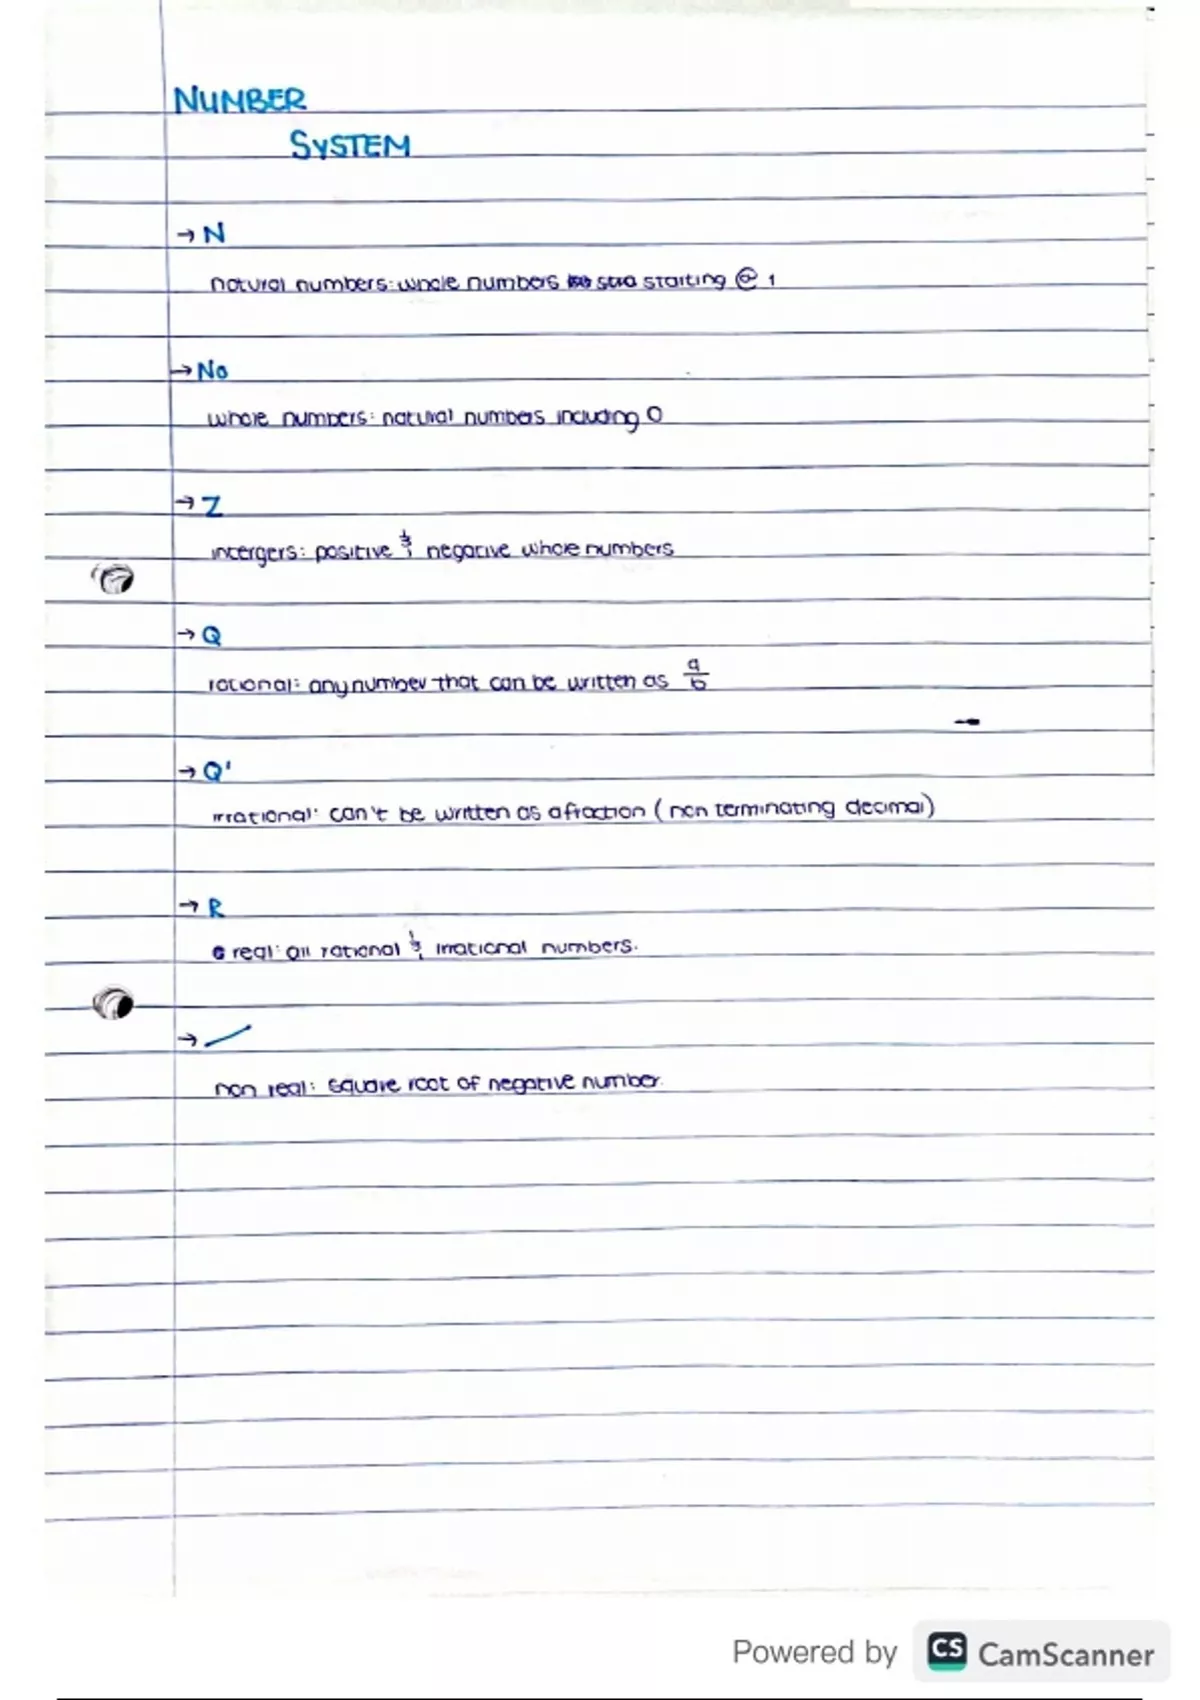 NUMBER
SYSTEM
→ N
natural numbers: whole numbers starting @ 1
→ No
whole numbers: natural numbers including 0
→ Z
intergers: positive & negative whole numbers
→ Q
rational: any number that can be written as a/b
→ Q'
irrational: can't be written as a fraction (non terminating decimal)
→ R
real: all rational & irrational numbers.
→ —
non real: square root of negative number.
Powered by CS CamScanner